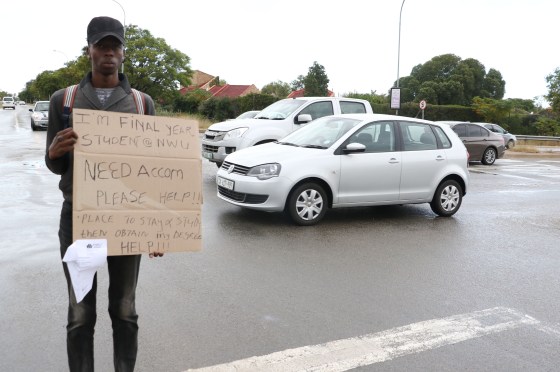 I'M FINAL YEAR
STUDENT @ NWU
NEED ACCOM
PLEASE HELP!!!
PLACE TO STAY & STUDY
then OBTAIN my DEGREE
HELP!!!